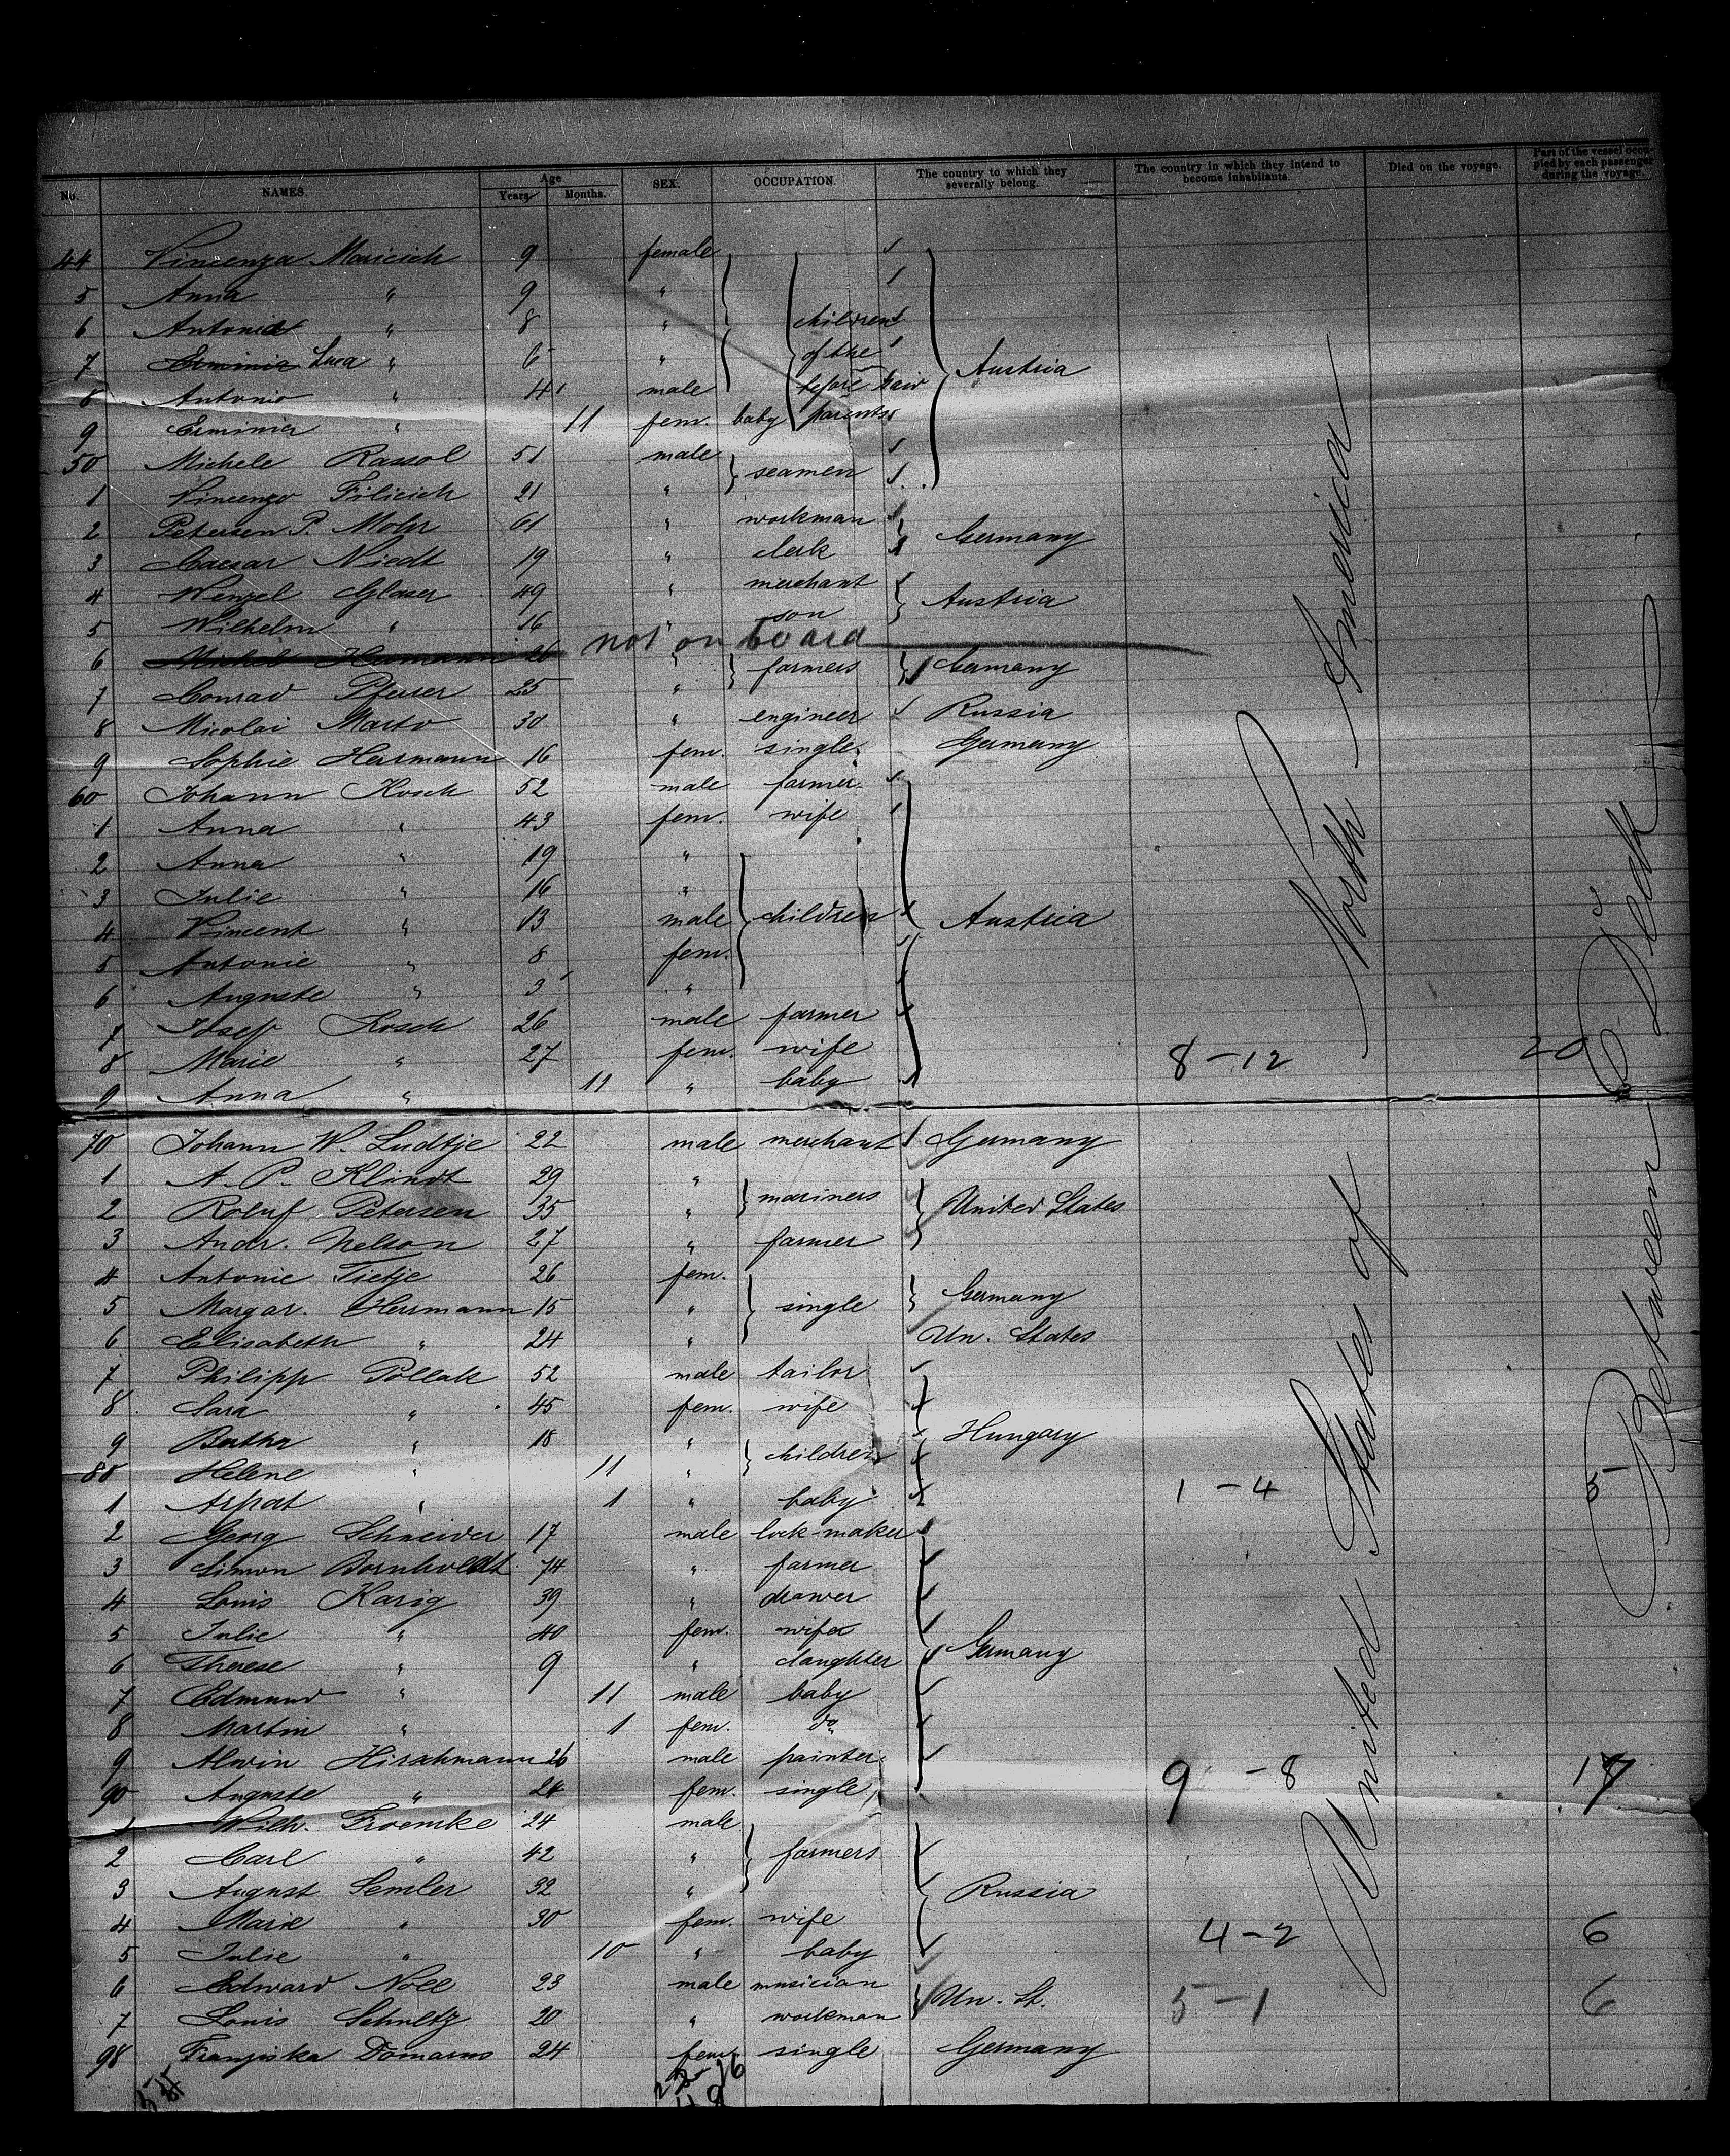 No. NAMES. Age Years Months. SEX. OCCUPATION. The country to which they severally belong. The country in which they intend to become inhabitants. Died on the voyage. Part of the vessel occupied by each passenger during the voyage.
44 Vincenza Maricich 9 female
5 Anna " 9 "
6 Antonia " 8 " children
7 Erminia Luca " 6 " of the
8 Antonio " 4 male before said Austria
9 Erminia " 11 fem. baby parents
50 Michele Rassol 51 male seamen
1 Vincenzo Filicich 21 "
2 Petersen P. Mohr 61 " workman Germany
3 Caesar Niedt 19 " clerk
4 Wenzel Glaser 49 " merchant Austria
5 Wilhelm " 16 " son
6 Michel Hermann 26 not on board " farmers Germany
7 Conrad Pfeiser 25 "
8 Nicolai Marto 30 " engineer Russia
9 Sophie Hermann 16 fem. single Germany
60 Johann Kosch 52 male farmer
1 Anna " 43 fem. wife
2 Anna " 19 "
3 Julie " 16 "
4 Vincent " 13 male children Austria
5 Antonie " 8 fem.
6 Auguste " 3 "
7 Josef Kosch 26 male farmer
8 Marie " 27 fem. wife 8-12 20
9 Anna " 11 " baby
70 Johann W. Ludtje 22 male merchant Germany
1 A. P. Klindt 29 " mariners
2 Roluf Petersen 35 " United States
3 Andr. Nelson 27 " farmer
4 Antonie Tietje 26 fem.
5 Margar. Herrmann 15 " single Germany
6 Elisabeth " 24 " Un. States
7 Philipp Pollak 52 male tailor
8 Sara " 45 fem. wife
9 Bertha " 18 " children Hungary
80 Helene " 11 "
1 Arpat " 1 " baby 1-4 5
2 Georg Schneider 17 male lock-maker
3 Simon Bornholdt 74 " farmer
4 Louis Karig 39 " drawer
5 Julie " 40 fem. wife
6 Therese " 9 " daughter Germany
7 Edmund " 11 male baby
8 Martin " 1 fem. do
9 Alwin Hirschmann 26 male painter 9-8 17
90 Auguste " 24 fem. single
1 Wilh. Froemke 24 male
2 Carl " 42 " farmers
3 August Semler 32 " Russia
4 Marie " 30 fem. wife 4-2 6
5 Julie " 10 " baby
6 Edward Noll 23 male musician Un. St. 5-1 6
7 Louis Schultz 20 " workman
98 Franziska Domarus 24 fem. single Germany
United States of North America
Between Deck